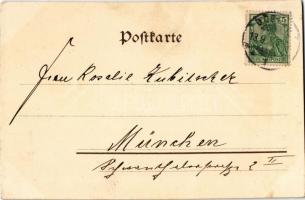 Postkarte
Frau Rosalie Kubitscher
München
Schwanthalerstrasse 2 II